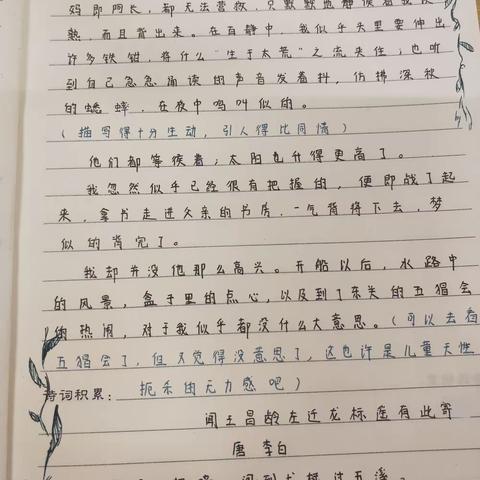 妈即阿长，都无法营救，只默默地静候着我
熟，而且背出来。在百静中，我似乎头里要伸出
许多铁钳，将什么"生于太荒"之流夹住；也听
到自己急急诵读的声音发着抖，仿拂深秋
的蟋蟀，在夜中鸣叫似的。
（描写得十分生动，引人得比同情）
他们都等候着；太阳也升得更高了。
我忽然似乎已经很有把握的，便即战了起
来，拿书走进父亲的书房，一气背将下去，梦
似的背完了。
我却并没他那么高兴。开船以后，水路中
的风景，盒子里的点心，以及到了东关的五猖会
的热闹，对于我似乎都没什么大意思。（可以去看
五猖会了，但又觉得没意思了，这也许是儿童天性
诗词积累： 扼杀的无力感吧）
闻王昌龄左迁龙标遥有此寄
唐 李白
闻到龙标过五溪。